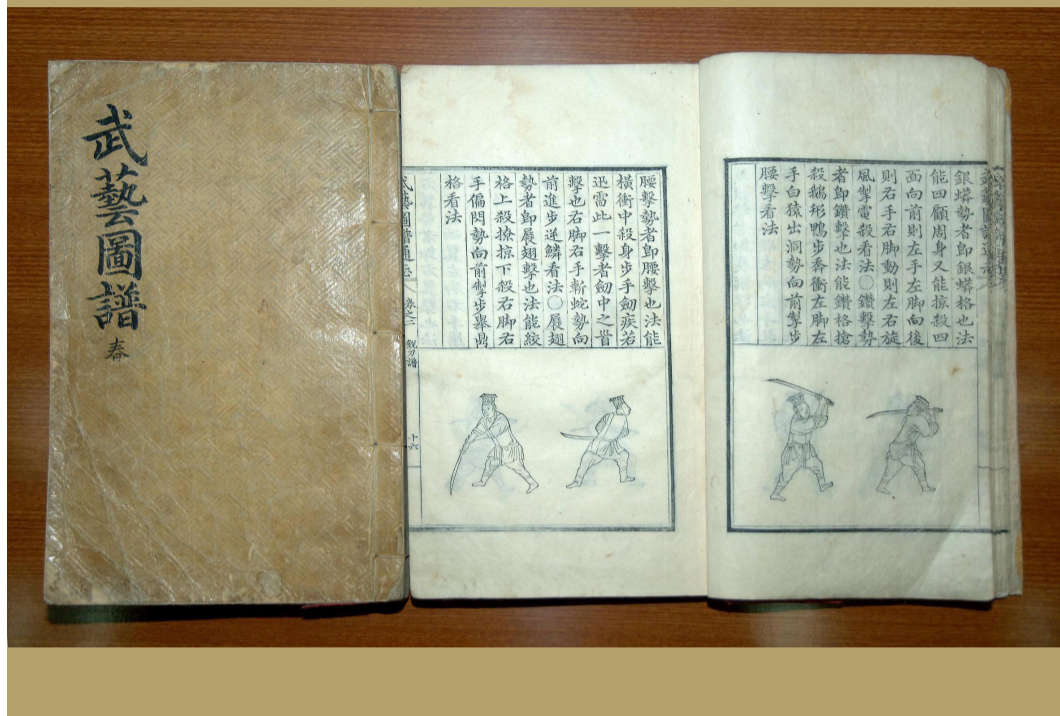 武藝圖譜
春
銀蟒勢者卽銀蟒格也法
能四顧周身又能掠殺四
面向前則左手左脚向後
則右手右脚動則左右旋
風掣電殺看法○鑽擊勢
者卽鑽擊也法能鑽格搶
殺鵝形鴨步奔衝左脚左
手白猿出洞勢向前掣步
腰擊看法
腰擊勢者卽腰擊也法能
橫衝中殺身步手劒疾若
迅雷此一擊者劒中之首
擊也右脚右手斬蛇勢向
前進步逆鱗看法○展翅
勢者卽展翅擊也法能絞
格上殺撩掠下殺右脚右
手偏閃勢向前掣步擧鼎
格看法
武藝圖譜通志
卷之二
銳刀譜
十六